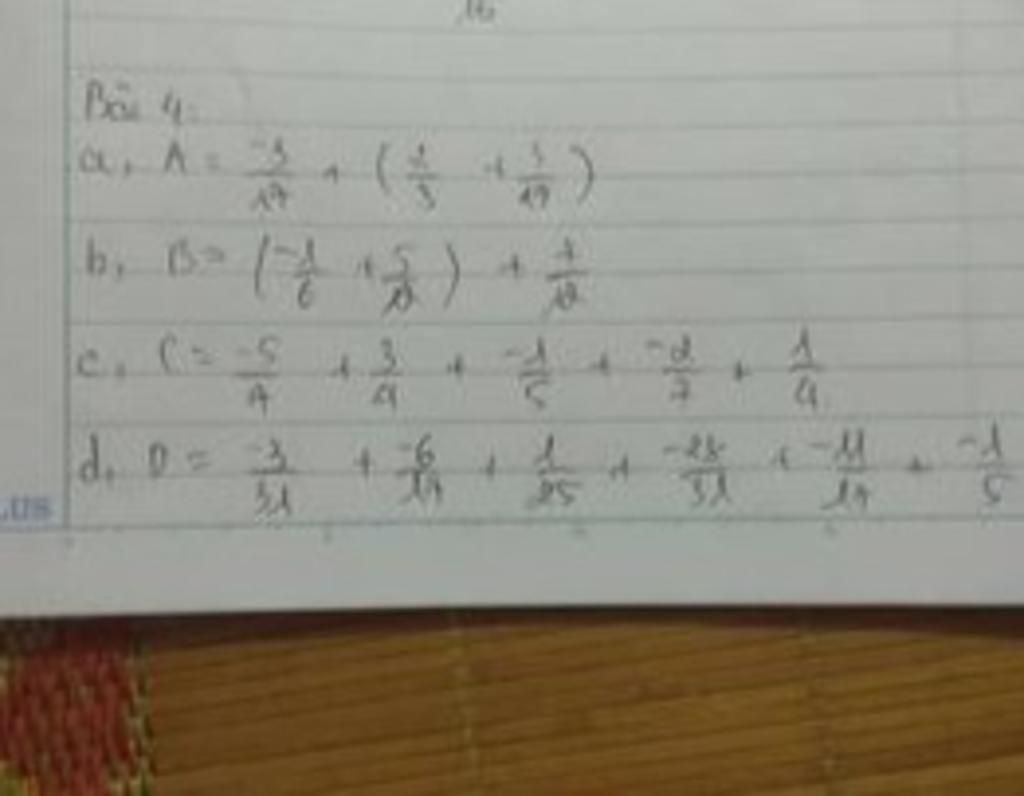 Bài 4.
a, A = -3/17 + (1/3 + 3/17)
b, B = (-1/6 + 5/12) + 7/12
c, C = -5/7 + 3/4 + -1/5 + -2/7 + 1/4
d, D = -3/31 + -6/17 + 1/25 + -28/31 + -11/17 + -1/5
LUS